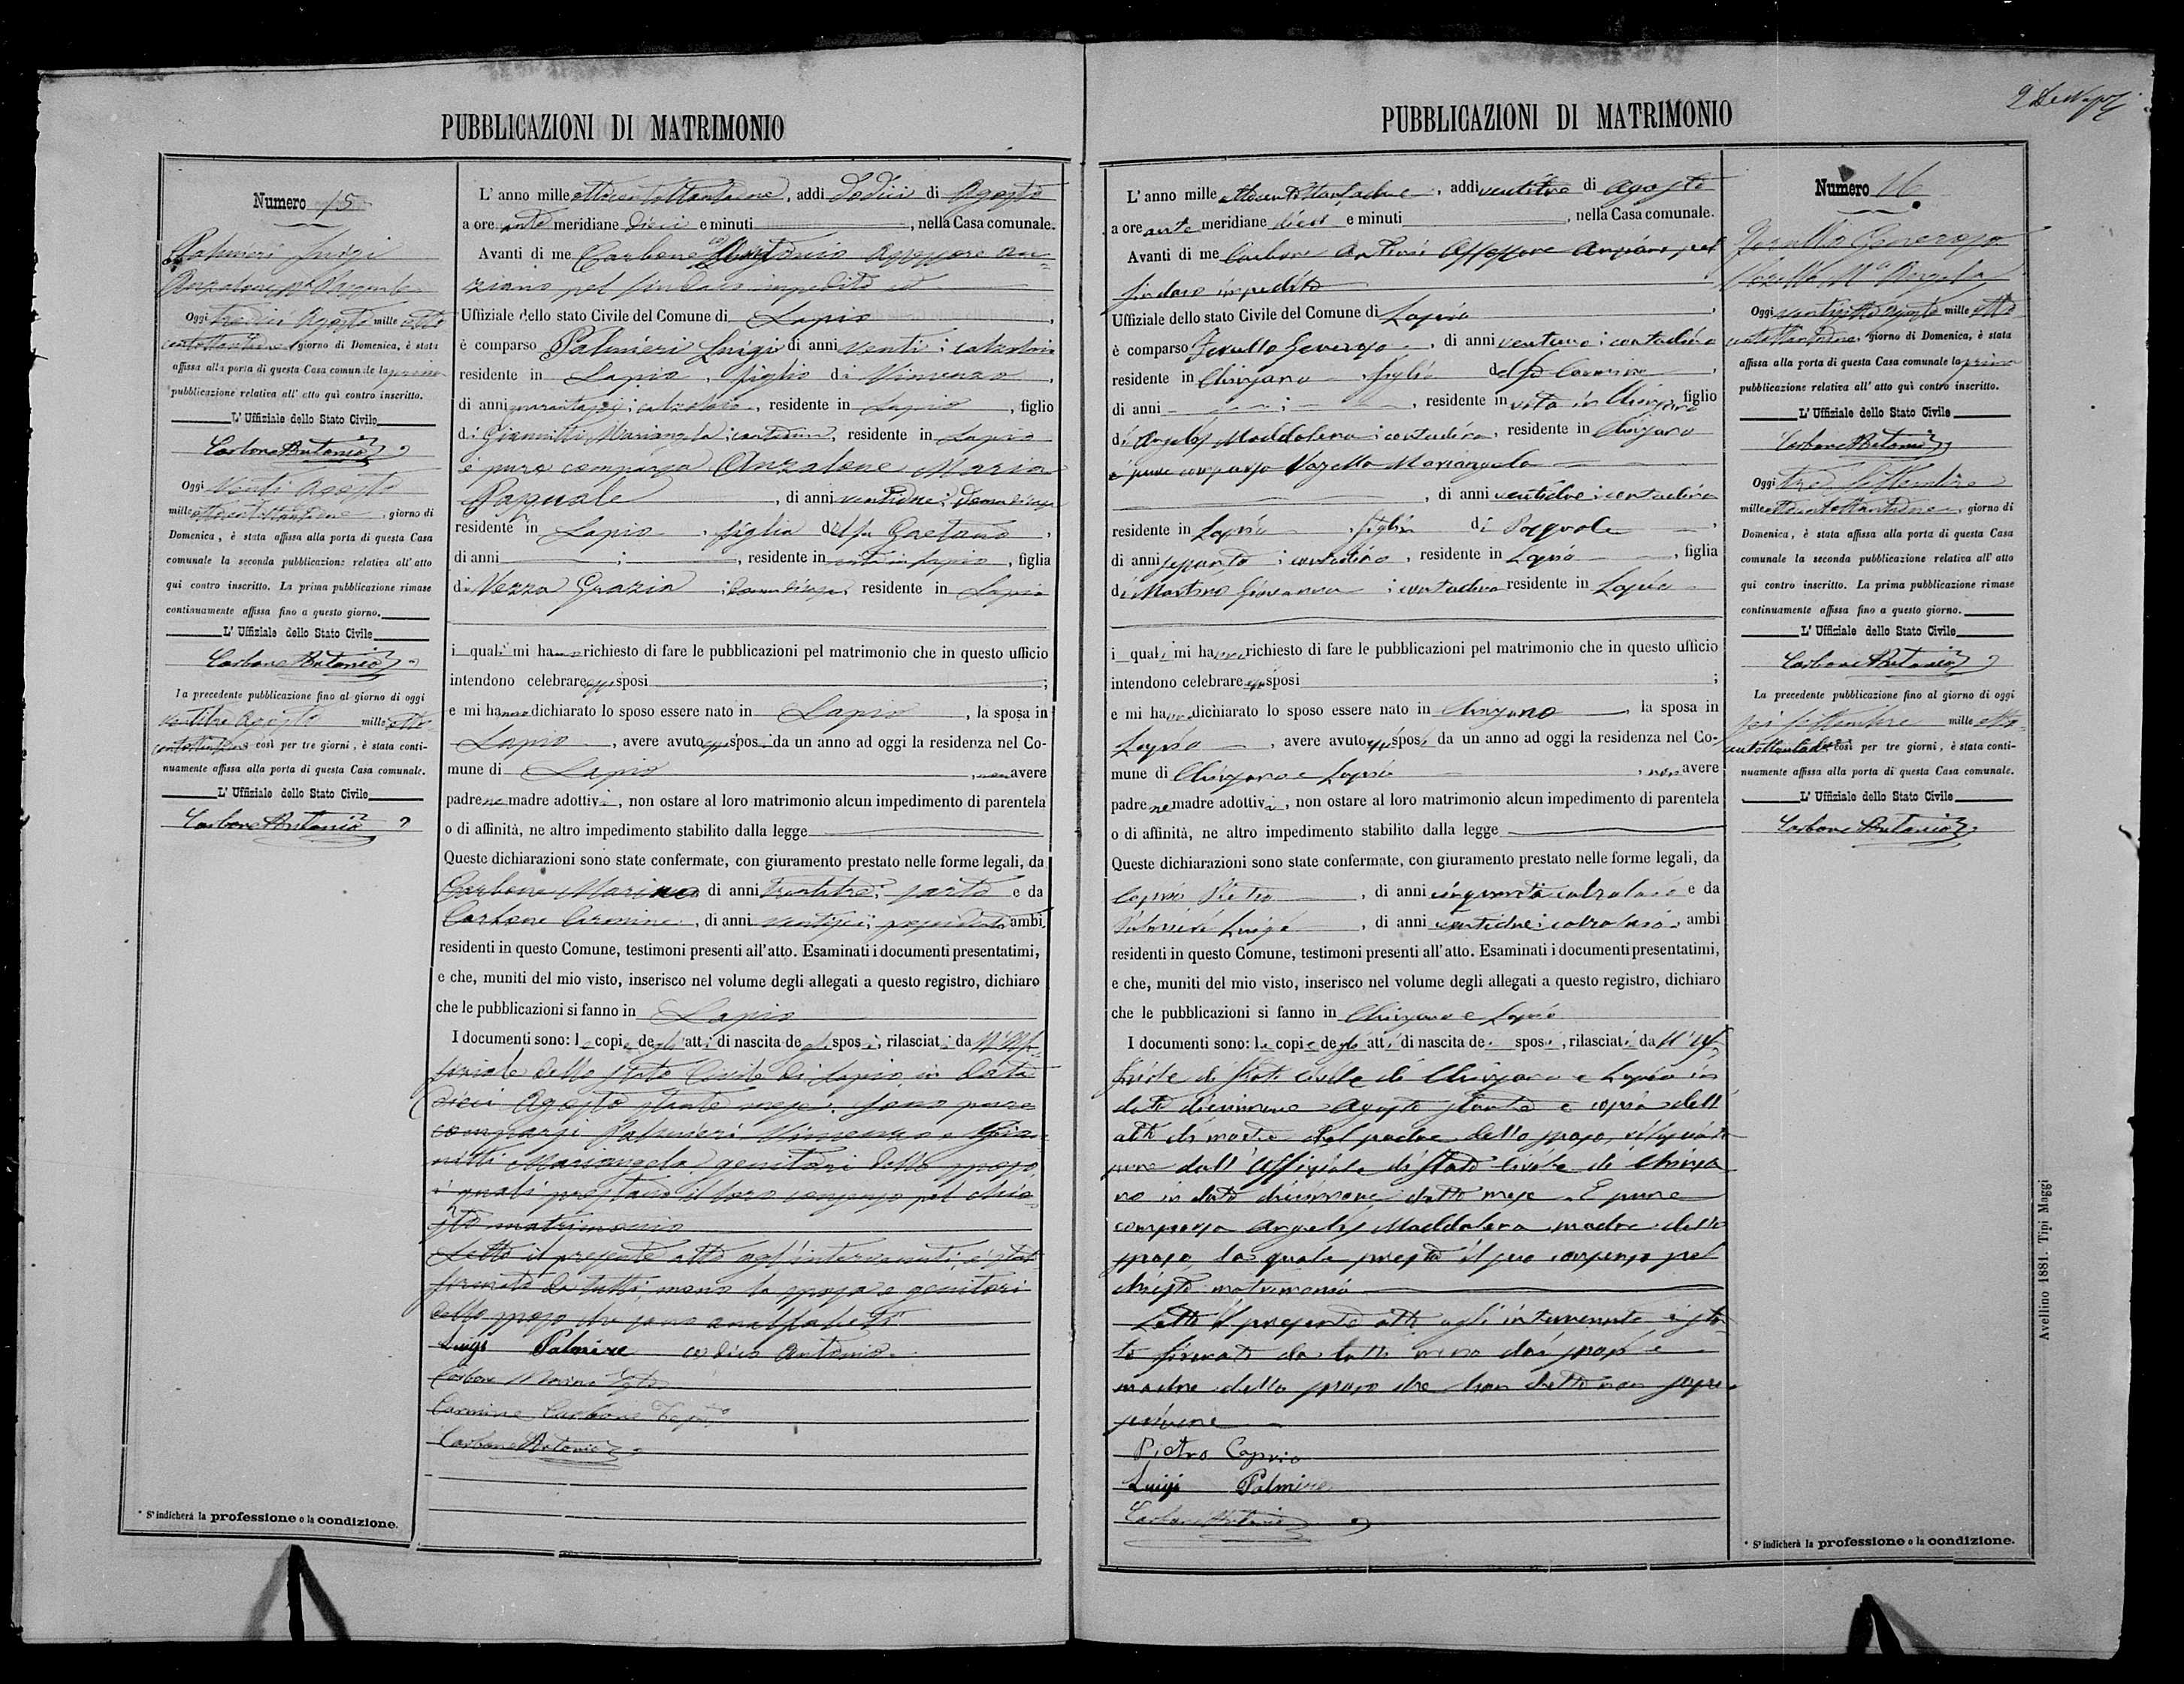 PUBBLICAZIONI DI MATRIMONIO
Numero 15
Palmieri Luigi
Anzalone Ma Pasquale
Oggi tredici Agosto mille otto
centottantadue giorno di Domenica, è stata
affissa alla porta di questa Casa comunale la prima
pubblicazione relativa all'atto quì contro inscritto.
L'Uffiziale dello Stato Civile
Carbone Antonio
Oggi Venti Agosto
mille ottocentottantadue, giorno di
Domenica, è stata affissa alla porta di questa Casa
comunale la seconda pubblicazione relativa all'atto
qui contro inscritto. La prima pubblicazione rimase
continuamente affissa fino a questo giorno.
L'Uffiziale dello Stato Civile
Carbone Antonio
La precedente pubblicazione fino al giorno di oggi
ventitre Agosto mille otto
centottantadue così per tre giorni, è stata conti-
nuamente affissa alla porta di questa Casa comunale.
L'Uffiziale dello Stato Civile
Carbone Antonio
* S'indicherà la professione o la condizione.
L'anno mille ottocentottantadue, addi dodici di Agosto
a ore ante meridiane dieci e minuti, nella Casa comunale.
Avanti di me Carbone Antonio Assessore an-
ziano pel sindaco impedito
Uffiziale dello stato Civile del Comune di Lapio,
è comparso Palmieri Luigi di anni venti; calzolaio
residente in Lapio, figlio di Vincenzo,
di anni quarantasei; calzolaio, residente in Lapio, figlio
di Giannitti Mariangela; contadina, residente in Lapio
è pure comparsa Anzalone Maria
Pasquale, di anni ventidue; donna di casa
residente in Lapio, figlia del fu Gaetano,
di anni ; , residente in vita in Lapio, figlia
di Nezza Grazia; donna di casa, residente in Lapio
i quali mi hanno richiesto di fare le pubblicazioni pel matrimonio che in questo ufficio
intendono celebrare essi sposi;
e mi hanno dichiarato lo sposo essere nato in Lapio, la sposa in
Lapio, avere avuto essi sposi da un anno ad oggi la residenza nel Co-
mune di Lapio, non avere
padre ne madre adottivi, non ostare al loro matrimonio alcun impedimento di parentela
o di affinità, ne altro impedimento stabilito dalla legge
Queste dichiarazioni sono state confermate, con giuramento prestato nelle forme legali, da
Carbone Marino di anni trentatre; sarto e da
Carbone Carmine, di anni ventisei; possidente ambi
residenti in questo Comune, testimoni presenti all'atto. Esaminati i documenti presentatimi,
e che, muniti del mio visto, inserisco nel volume degli allegati a questo registro, dichiaro
che le pubblicazioni si fanno in Lapio
I documenti sono: le copie degli atti di nascita degli sposi, rilasciati dall'Uf-
fiziale dello stato Civile di Lapio in data
dieci Agosto stante mese. Sono pure
comparsi Palmieri Vincenzo e Gian-
nitti Mariangela, genitori dello sposo,
i quali prestano il loro consenso pel chie-
sto matrimonio
Letto il presente atto agl'intervenuti, è stato
firmato da tutti, meno la sposa e genitori
dello sposo che sono analfabeti
Luigi Palmire co dico Antonio
Carbone Marino Teste
Carmine Carbone Teste
Carbone Antonio
PUBBLICAZIONI DI MATRIMONIO
L'anno mille ottocentottantadue, addi ventitre di Agosto
a ore ante meridiane dieci e minuti, nella Casa comunale.
Avanti di me Carbone Antonio Assessore Anziano pel
Sindaco impedito
Uffiziale dello stato Civile del Comune di Lapio,
è comparso Ferullo Generoso, di anni ventuno; contadino
residente in Chiusano, figlio del fu Carmine,
di anni ; , residente in vita in Chiusano figlio
di Angelis Maddalena; contadina, residente in Chiusano
è pure comparsa Vozella Mariangela
, di anni ventidue; contadina
residente in Lapio, figlia di Pasquale,
di anni sessanta; contadino, residente in Lapio, figlia
di Martino Giovanna; contadina residente in Lapio
i quali mi hanno richiesto di fare le pubblicazioni pel matrimonio che in questo ufficio
intendono celebrare essi sposi;
e mi hanno dichiarato lo sposo essere nato in Chiusano, la sposa in
Lapio, avere avuto essi sposi da un anno ad oggi la residenza nel Co-
mune di Chiusano e Lapio, non avere
padre ne madre adottivi, non ostare al loro matrimonio alcun impedimento di parentela
o di affinità, ne altro impedimento stabilito dalla legge
Queste dichiarazioni sono state confermate, con giuramento prestato nelle forme legali, da
Caprio Pietro, di anni cinquanta calzolaio e da
Palmieri Luigi, di anni ventidue; calzolaio, ambi
residenti in questo Comune, testimoni presenti all'atto. Esaminati i documenti presentatimi,
e che, muniti del mio visto, inserisco nel volume degli allegati a questo registro, dichiaro
che le pubblicazioni si fanno in Chiusano e Lapio
I documenti sono: le copie degli atti di nascita dei sposi, rilasciati dall'Uf-
fiziale di stato civile di Chiusano e Lapio in
data diecinnove Agosto stante e copia dell'
atto di morte del padre dello sposo, rilasciato
pure dall'Uffiziale di stato Civile di Chiusa-
no in data diecinnove detto mese. È pure
comparsa Angelis Maddalena madre dello
sposo, la quale presta il suo consenso pel
chiesto matrimonio
Letto il presente atto agli intervenuti è sta-
to firmato da tutti meno dai sposi e
madre dello sposo che han detto non sapere
scrivere
Pietro Caprio
Luigi Palmire
Carbone Antonio
Numero 16.
Ferullo Generoso
Vozella Ma Angela
Oggi ventisette Agosto mille otto
centottantadue, giorno di Domenica, è stata
affissa alla porta di questa Casa comunale la prima
pubblicazione relativa all'atto quì contro inscritto.
L'Uffiziale dello Stato Civile
Carbone Antonio
Oggi tre Settembre
mille ottocentottantadue, giorno di
Domenica, è stata affissa alla porta di questa Casa
comunale la seconda pubblicazione relativa all'atto
qui contro inscritto. La prima pubblicazione rimase
continuamente affissa fino a questo giorno.
L'Uffiziale dello Stato Civile
Carbone Antonio
La precedente pubblicazione fino al giorno di oggi
sei Settembre mille otto-
centottantadue così per tre giorni, è stata conti-
nuamente affissa alla porta di questa Casa comunale.
L'Uffiziale dello Stato Civile
Carbone Antonio
* S'indicherà la professione o la condizione.
Avellino 1881. Tipi Maggi